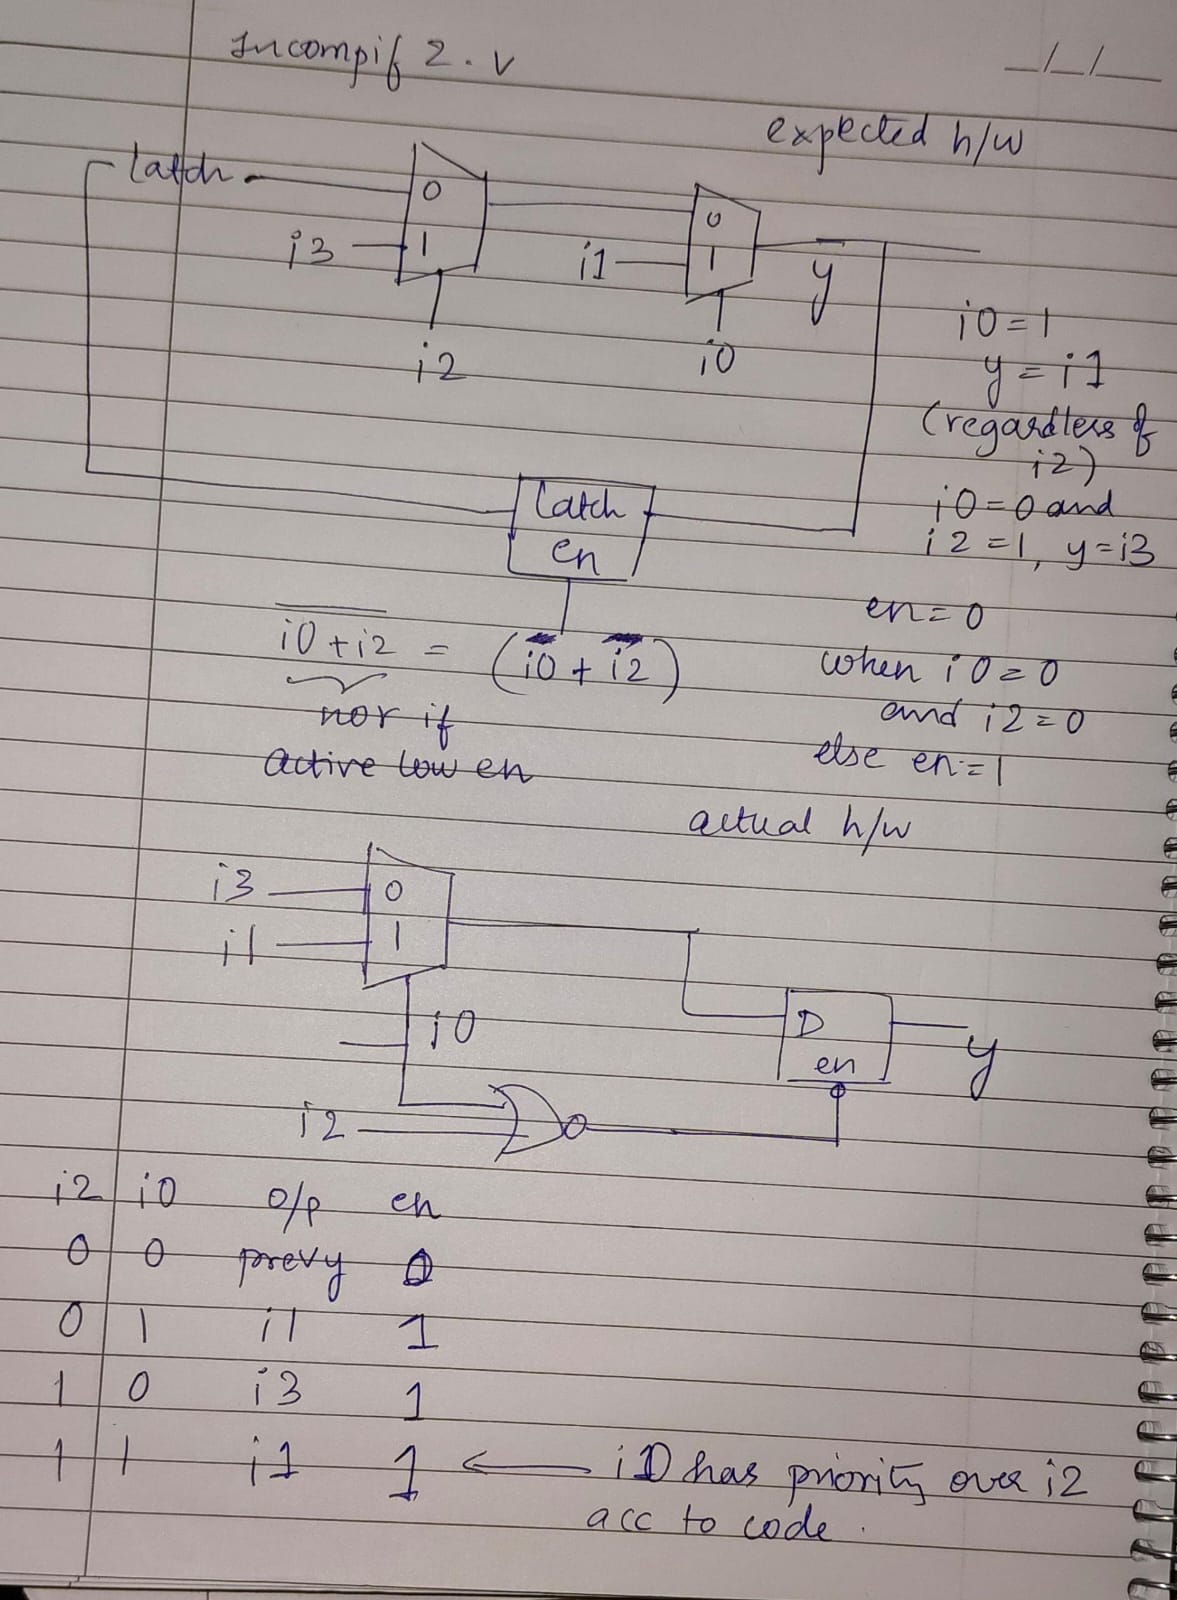 Incompif 2.v
_/_/__
expected h/w
latch
0
i3
1
i2
0
i1
1
i0
y
i0=1
y=i1
(regardless of
i2)
i0=0 and
i2=1, y=i3
latch
en
i0+i2 = (i0 + i2)
nor if
active low en
en=0
when i0=0
and i2=0
else en=1
actual h/w
i3
0
i1
1
i0
i2
D
en
y
i2 i0 o/p en
0 0 prevy 0
0 1 i1 1
1 0 i3 1
1 1 i1 1 ← i0 has priority over i2
acc to code.